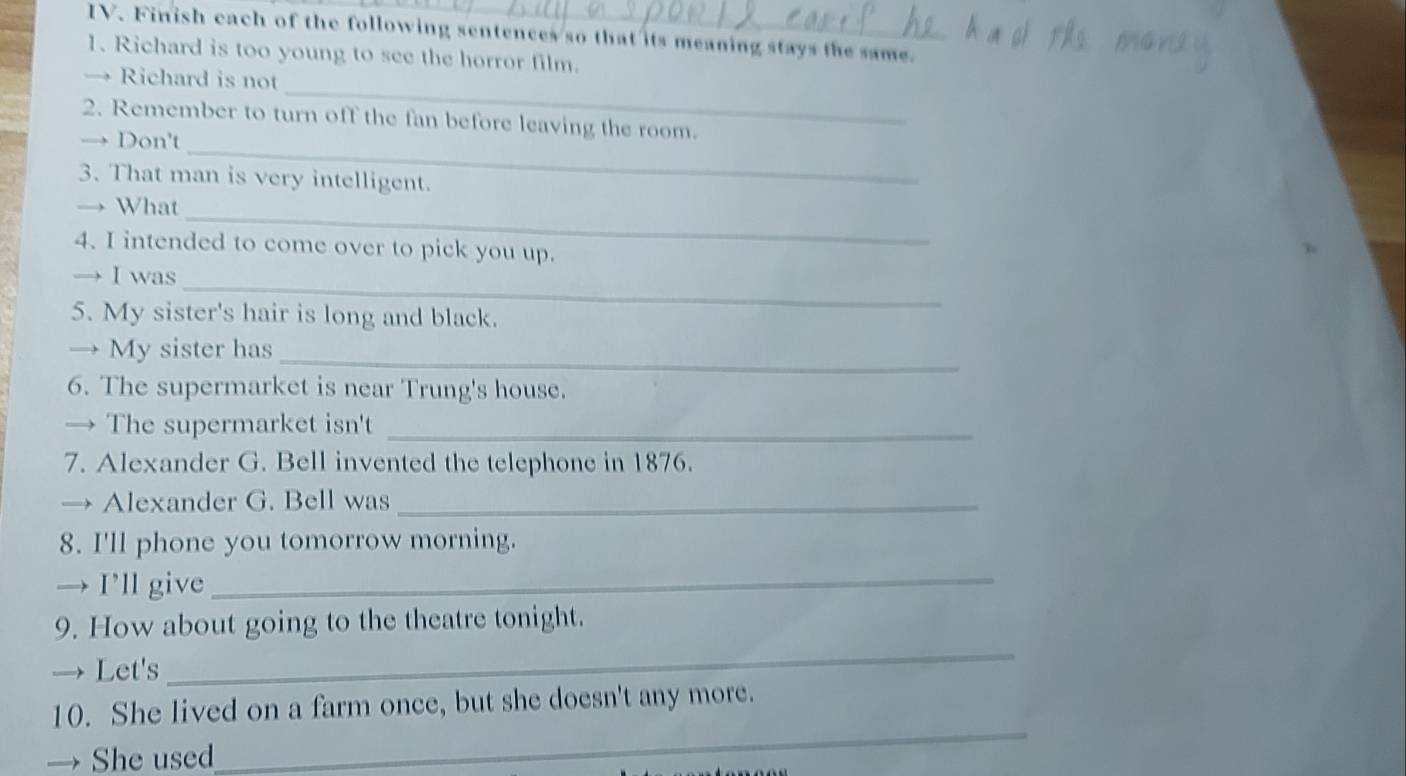 buy a sports car if he had the money
IV. Finish each of the following sentences so that its meaning stays the same.
1. Richard is too young to see the horror film.
→ Richard is not
2. Remember to turn off the fan before leaving the room.
→ Don't
3. That man is very intelligent.
→ What
4. I intended to come over to pick you up.
→ I was
5. My sister's hair is long and black.
→ My sister has
6. The supermarket is near Trung's house.
→ The supermarket isn't
7. Alexander G. Bell invented the telephone in 1876.
→ Alexander G. Bell was
8. I'll phone you tomorrow morning.
→ I'll give
9. How about going to the theatre tonight.
→ Let's
10. She lived on a farm once, but she doesn't any more.
→ She used